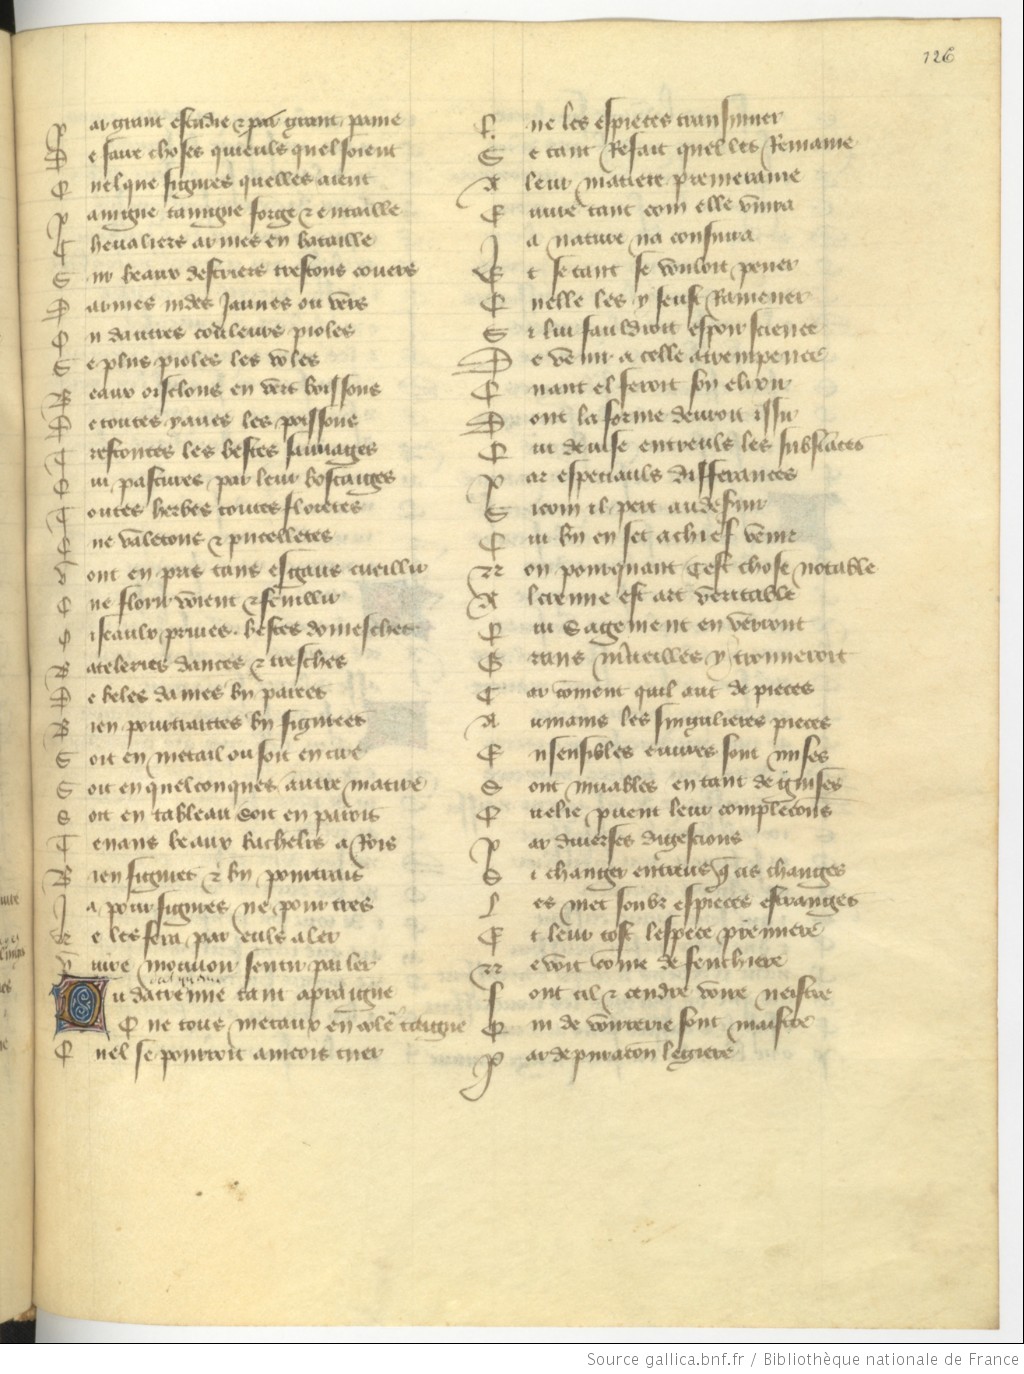 126
Par grant estudie et par grant paine
De faire choses quieuls quel soient
Quelque figures quelles aient
Paingne taingne forge et entaille
Chevaliers armes en bataille
Sur beaux destriers trestous couvers
Darmes indes Jaunes ou vers
Ou dautres couleurs pioles
Se plus pioles les voles
Beaux oisellons en vert boissons
De toutes yaues les poissons
Trestoutes les bestes sauvages
Qui pastures par leur boscages
Toutes herbes toutes floretes
Que valetons et pucelletes
Vont en pres tans es gaus cueillir
Que florir voient et feuillir
Oiseaulx prives bestes domesches
Bateleries dances et tresches
De beles dames bn parees
Bien pourtraittes bn figurees
Soit en metail ou soit en cire
Soit en quelconques autre matire
Soit en tableau soit en parois
Tenans beaux bachelers a Rois
Bien figures et bn pourtrais
Ja pour figures ne pour tres
Ne les fera par euls aler
Vivre mouvoir sentir parler
Ou darkemie tant apraigne
Que tous metaux en coleur taigne
Quel se pourroit aincois tuer
Que les espieces transmuer
Se tant Resait quel les Remaine
A leur matiere premeraine
Euvre tant com elle vivra
Ja nature na consuira
Et se tant se vouloit pener
Quelle les y seust Ramener
Si lui faudroit espoir science
De venir a celle atrempence
Quant el feroit son elixir
Dont la forme devroit issir
Qui devise entreuls les substances
Par especiauls differances
Sicom il pert au defenir
Qui bn en set a chief venir
Non pourquant cest chose notable
Alkemie est art veritable
Qui Sagement en verroit
Grans merveilles y trouveroit
Car coment quil ait de pieces
Aumains les singulieres pieces
En sensibles euvres sont mises
Sont muables en tant de guises
Quelle puent leur complections
Par diverses digestions
Si changer entreus que cis changes
Les met soubz espieces estranges
Et leur tost lespece premiere
Ne voit come de feuchiere
Font cil et cendre voirre neistre
Qui de voirrerie sont maistre
Par depuracon legiere